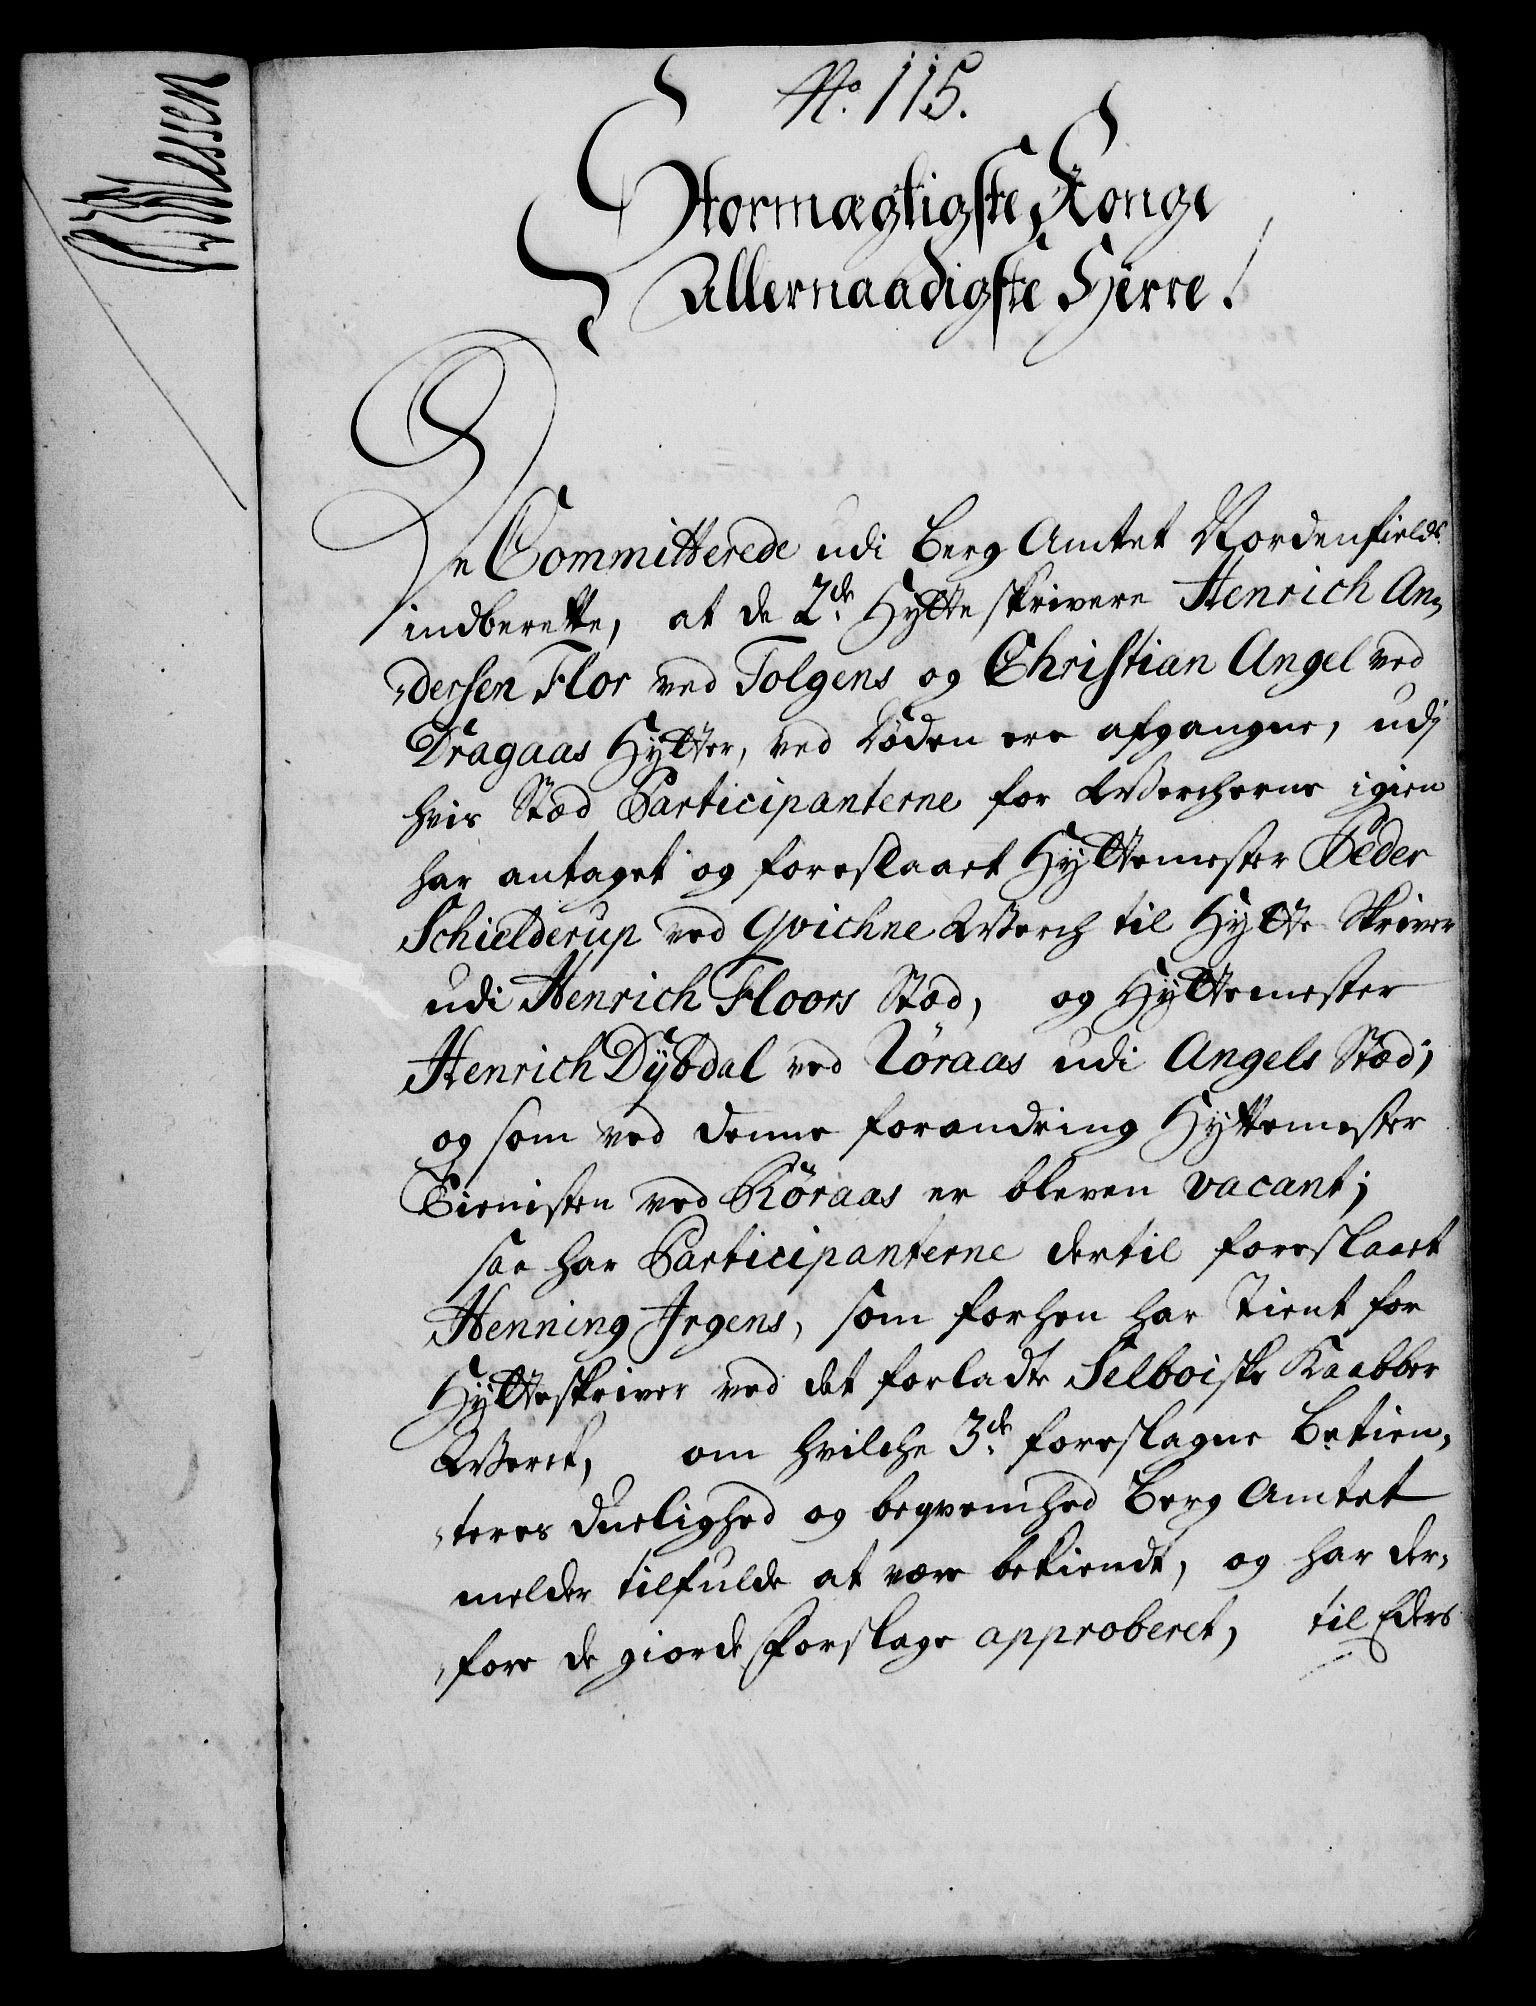 No. 115.
Stormægtigste Konge
Allernaadigste Herre!
De Committerede udi Berg Amtet Nordenfields
indberette, at de 2de Hytteskrivere Henrich An„
„dersen Flor ved Tolgens og Christian Angel ved
Dragaas Hytter, ved Døden ere afgangne, udj
hvis Stæd Participanterne for Wercherne igien
har antaget og foreslaaet Hyttemester Peder
Schielderup ved Qvichne Werch til Hytte Skriver
udi Henrich Floors Stæd, og Hyttemester
Henrich Dÿbdal ved Röraas udi Angels Stæd;
og som ved denne forandring Hyttemester
Tienisten ved Röraas er bleven vacant;
saa har Participanterne dertil foreslaaet
Henning Irgens, som forhen har tient for
Hytteskriver ved det forladte Selboiske Kaabber
Werck, om hvilche 3de foreslagne Betien„
„teres duelighed og beqvemhed Berg Amtet
melder tilfulde at være bekiendt, og har der„
„fore de giorde Forslage approberet, til Eders